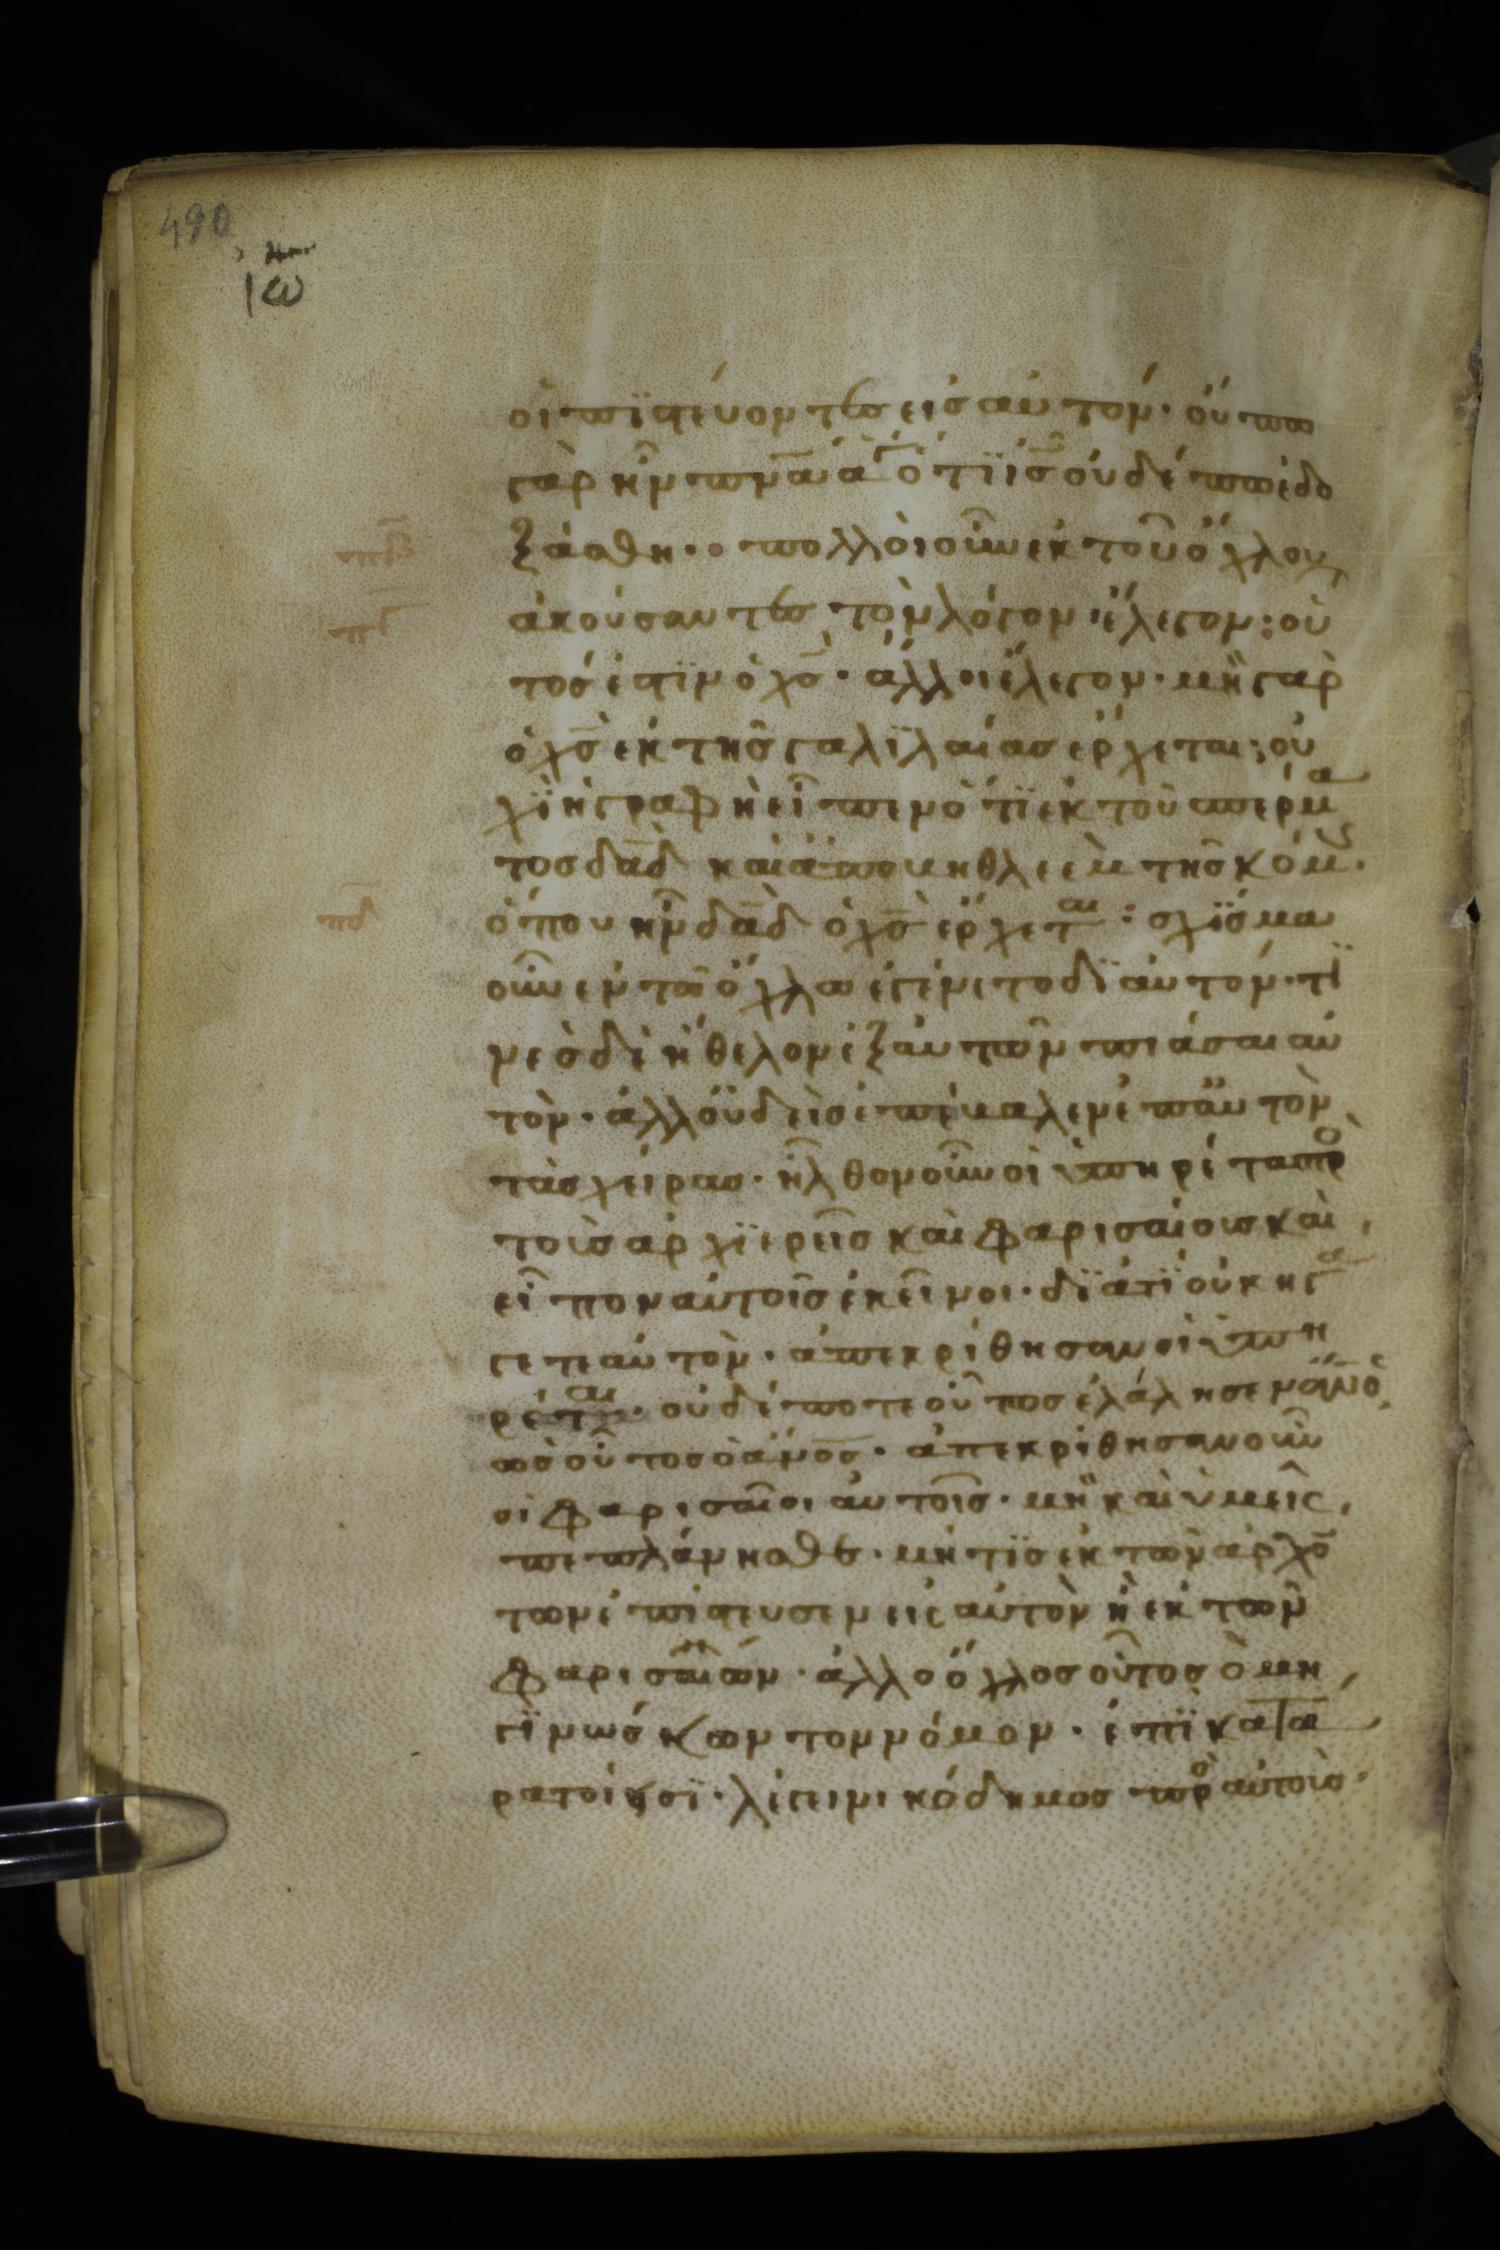 490
ιω
οἱ πϊστεύοντες εἰς αὐτόν· οὔπω
γὰρ ἦν πνᾱ ἅγ̄ ὅτϊ ις̄ οὐδέπω ἐδο
πβ̄ ξάσθη·· πολλοὶ οὖν ἐκ τοῦ ὄχλου
πγ̄ ἀκούσαντες τὸν λόγον ἔλεγον: οὗ
τός ἐστϊν ὁ χς̄· ἄλλοι ἔλεγον· μὴ γὰρ
ὁ χς̄ ἐκ τῆς γαλϊλαίας ἔρχεται; οὐ
χϊ ἡ γραφὴ εἶπεν ὅτϊ ἐκ τοῦ σπέρμα
τος δᾱδ καὶ ἀπο βηθλεὲμ τῆς κόμ̄.
πδ̄ ὅπου ἦν δᾱδ ὁ χς̄ ἔρχεται: σχϊσμα
οὖν ἐν τῶ ὄχλω ἐγένετο δϊ αὐτόν· τϊ
νὲς δὲ ἤθελον ἐξ αὐτῶν πιάσαι αὐ
τὸν· ἀλλ οὐδεὶς ἐπέβαλεν ἐπ αὐτὸν
τὰς χείρας· ἦλθον οὖν οἱ ὑπηρέται πρὸ
τοὺς αρχϊερεῖς καὶ φαρισαίους καὶ
εἶπον αὐτοῖς ἐκεῖνοι· δϊατϊ οὐκ ἠγά
γετε αὐτὸν· ἀπεκρίθησαν οἱ ὑπη
ρέται· οὐδέποτε οὕτως ἐλάλησεν ἄν̄ος
ὡς οὗτος ὁ ἄνος̄· ἀπεκρίθησαν οὖν
οἱ φαρισαῖοι αὐτοῖς· μὴ καὶ ὑμεῖς
πεπλάνησθε· μή τϊς ἐκ τῶν ἀρχό
των ἐπίστευσεν εἰς αὐτὸν ἢ ἐκ τῶν
φαρισαίων· ἀλλ ὁ ὄχλος οὗτος ὁ μη
γϊνωσκων τον νόμον· ἐπϊκατα
ρατοί εἰσϊ· λέγει νικόδημος πρὸ αὐτοὺς·